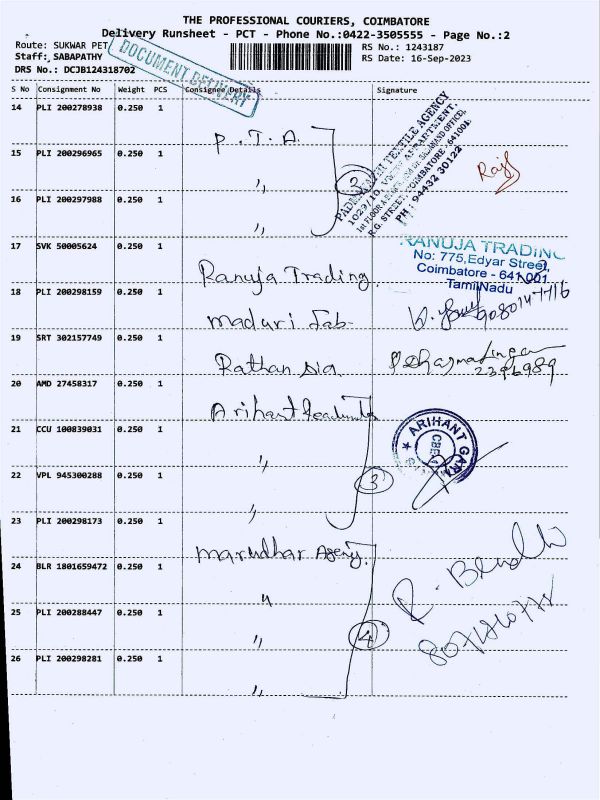 THE PROFESSIONAL COURIERS, COIMBATORE
Delivery Runsheet - PCT - Phone No.:0422-3505555 - Page No.:2
Route: SUKWAR PET
RS No.: 1243187
Staff: SABAPATHY
RS Date: 16-Sep-2023
DRS No.: DCJB124318702
DOCUMENT DELIVERY
S No Consignment No Weight PCS Consignee Details Signature
14 PLI 200278938 0.250 1
P.T.A.
15 PLI 200296965 0.250 1
"
3
16 PLI 200297988 0.250 1
"
TEXTILE AGENCY
R.G. STREET, COIMBATORE - 641001.
PH : 94432 30122
17 SVK 50005624 0.250 1
Ranuja Trading
RANUJA TRADING
No: 775,Edyar Street,
Coimbatore - 641 001
TamilNadu
18 PLI 200298159 0.250 1
maduri Jab
19 SRT 302157749 0.250 1
Rathan
2396989
20 AMD 27458317 0.250 1
Arihant
21 CCU 100839031 0.250 1
"
ARIHANT GARM
22 VPL 945300288 0.250 1
3
"
23 PLI 200298173 0.250 1
marudhar Agency
24 BLR 1801659472 0.250 1
"
25 PLI 200288447 0.250 1
"
4
26 PLI 200298281 0.250 1
"